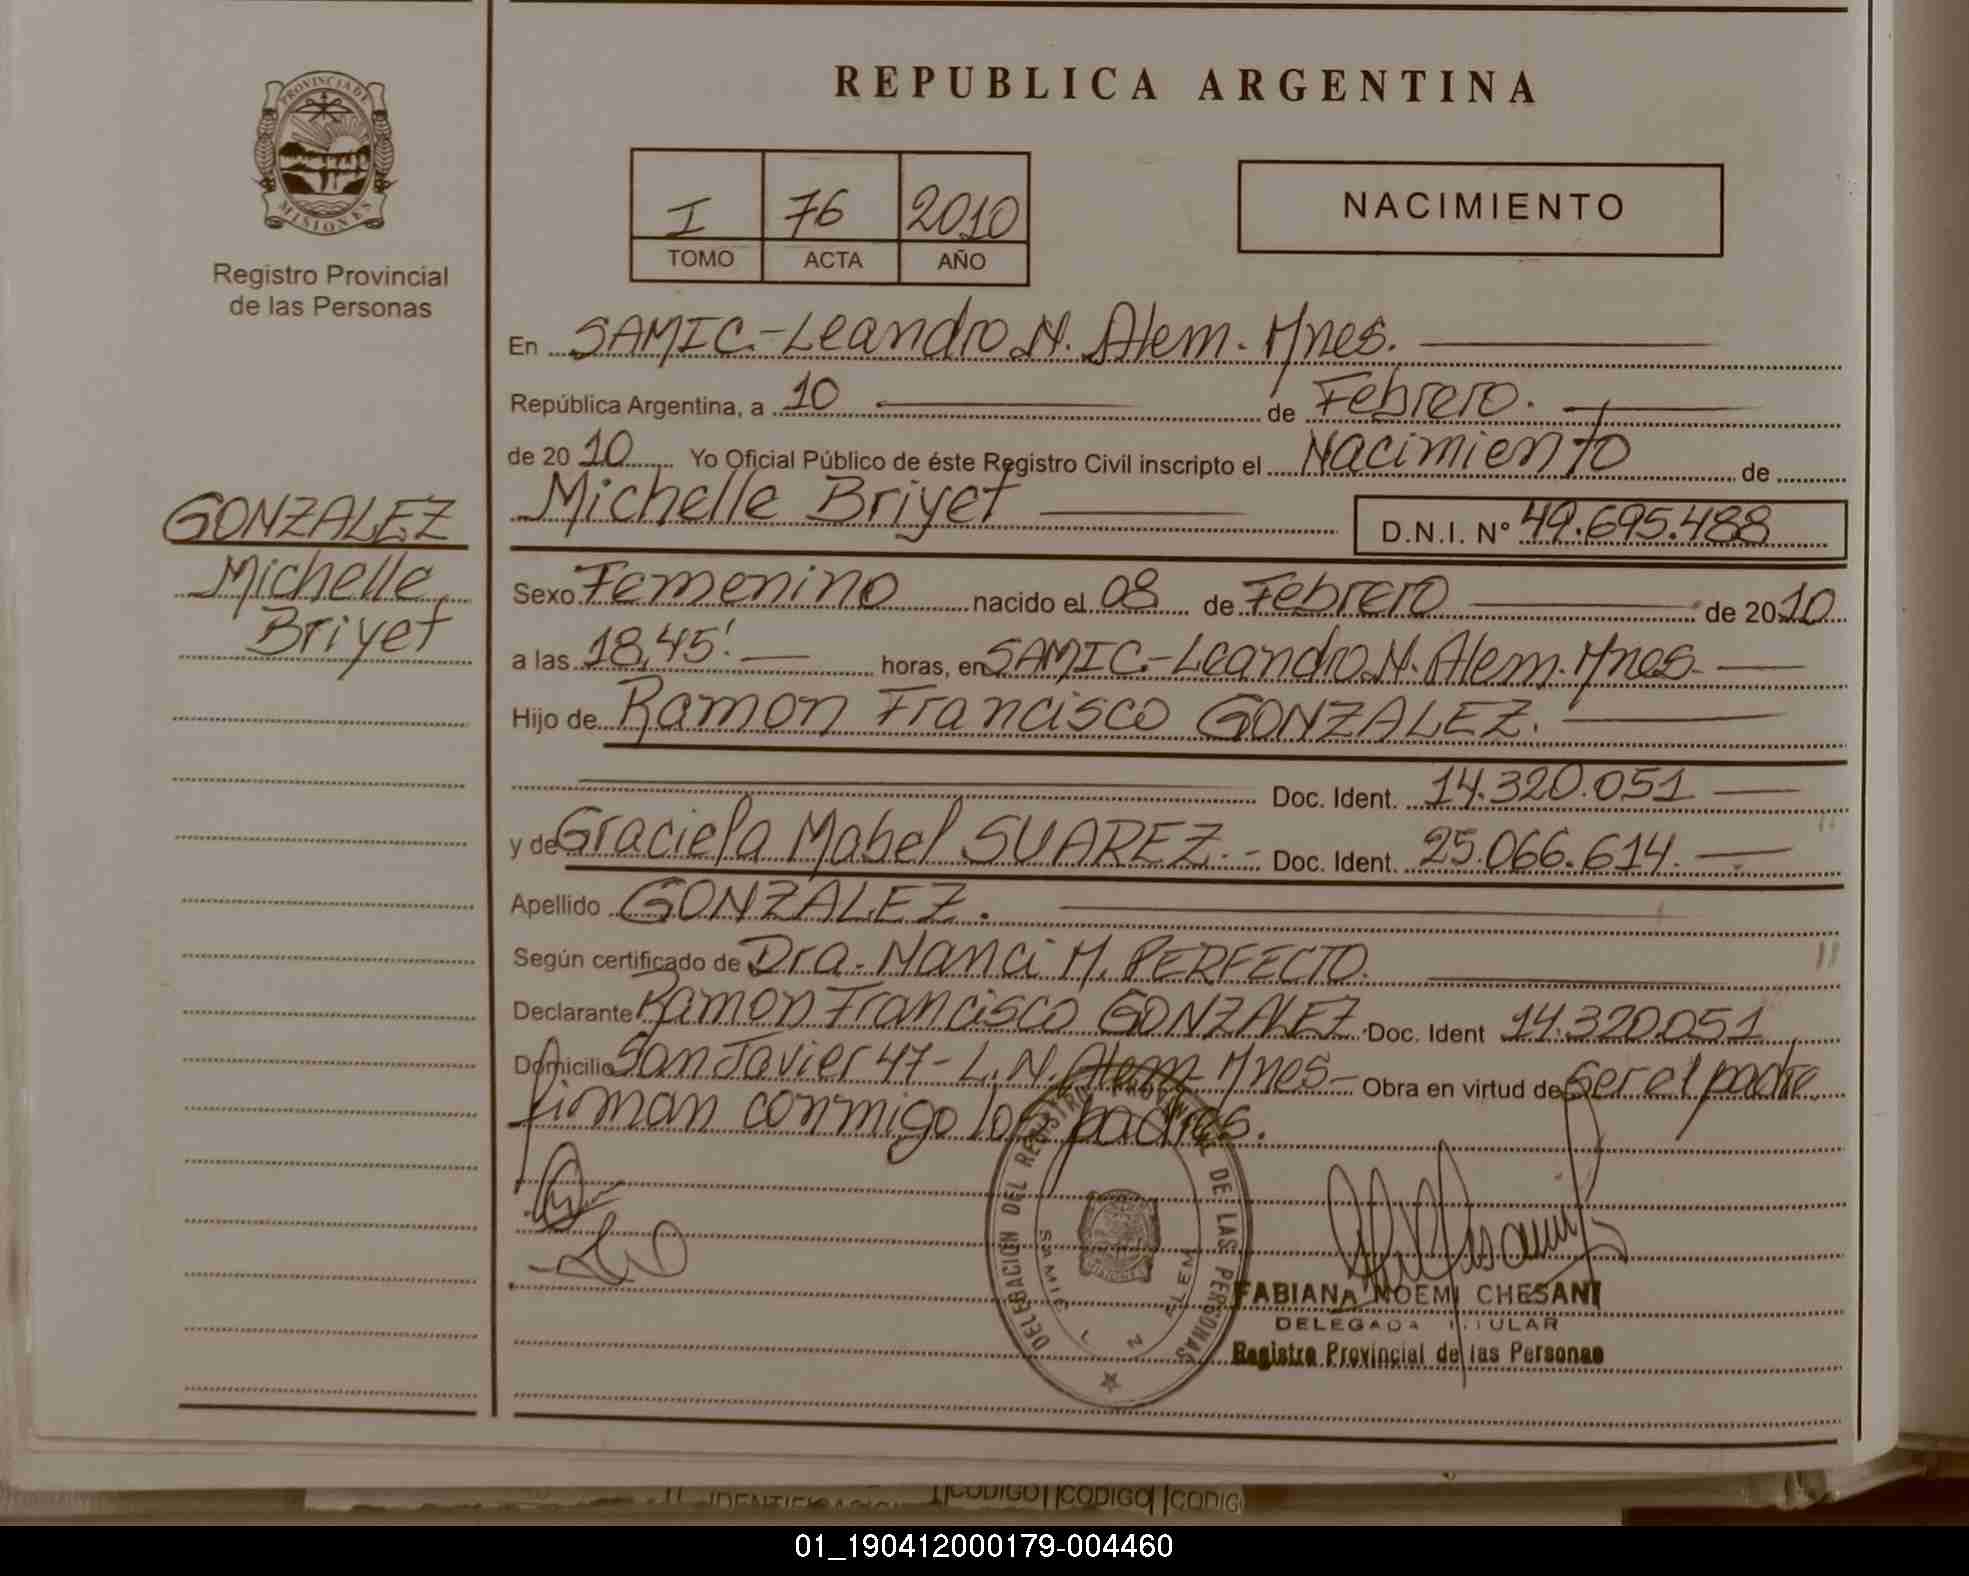 PROVINCIA DE
MISIONES
Registro Provincial
de las Personas
GONZALEZ
Michelle
Briyet
REPUBLICA ARGENTINA
I 76 2010
TOMO ACTA AÑO
NACIMIENTO
En SAMIC.-Leandro N. Alem. Mnes.
República Argentina, a 10 de Febrero.
de 2010 Yo Oficial Público de éste Registro Civil inscripto el Nacimiento de
Michelle Briyet D.N.I. Nº 49.695.488
Sexo Femenino nacido el 08 de Febrero de 2010
a las 18,45! horas, en SAMIC.-Leandro N. Alem. Mnes.
Hijo de Ramon Francisco GONZALEZ.
Doc. Ident. 14.320.051
y de Graciela Mabel SUAREZ.- Doc. Ident. 25.066.614.
Apellido GONZALEZ.
Según certificado de Dra. Nanci M. PERFECTO.
Declarante Ramon Francisco GONZALEZ. Doc. Ident 14.320.051
Domicilio San Javier 47- L. N. Alem- Mnes- Obra en virtud de Ser el padre
firman conmigo los padres.
DELEGACION DEL REGISTRO PROVINCIAL DE LAS PERSONAS
SAMIC L N ALEM
FABIANA NOEMI CHESANI
DELEGADA TITULAR
Registro Provincial de las Personas
CODIGO CODIGO CODIG
01_190412000179-004460